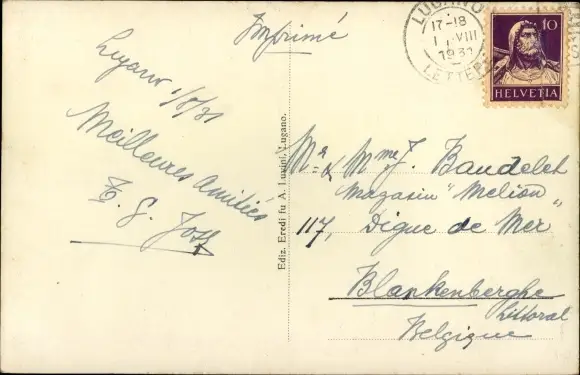 Imprimé
Lugano 1/8/31
Meilleures amitiés
Ediz. Eredi fu A. Lucini, Lugano.
LUGANO
17-18
VIII
1931
LETTER
10
HELVETIA
Mr & Mme J. Baudelet
Magasin "Mélion"
117, Digue de Mer
Blankenberghe
Littoral
Belgique